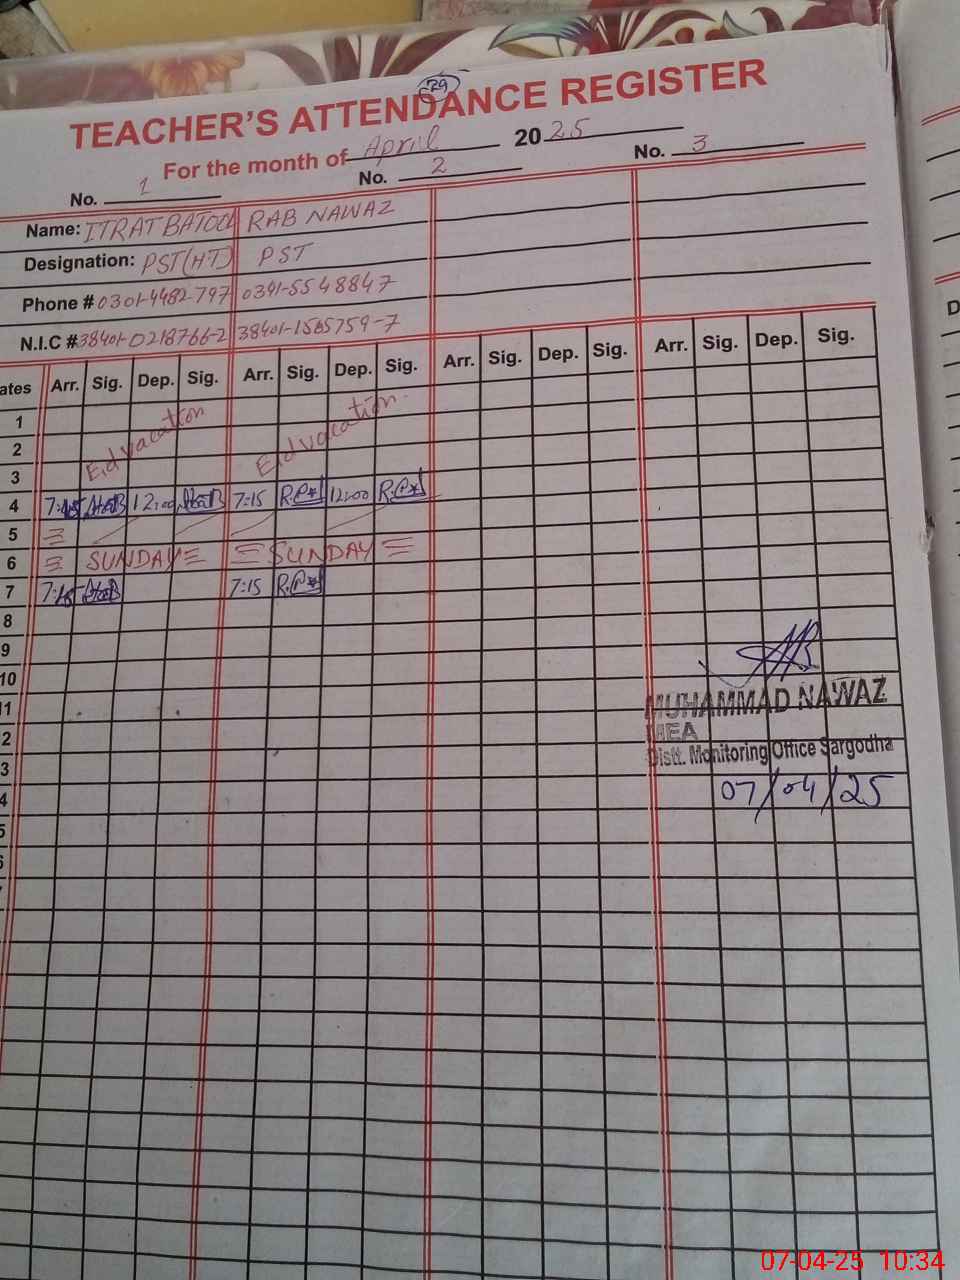 29
TEACHER'S ATTENDANCE REGISTER
For the month of April 2025
No. 1 No. 2 No. 3
Name: ITRAT BATOOL RAB NAWAZ
Designation: PST(HT) PST
Phone # 0301-4482-797 0341-5548847
N.I.C # 38401-0218766-2 38401-1565759-7
ates Arr. Sig. Dep. Sig. Arr. Sig. Dep. Sig. Arr. Sig. Dep. Sig. Arr. Sig. Dep. Sig.
1
2 Eid vacation Eid vacation
3
4 7:15 12:00 7:15 12:00
5
6 SUNDAY SUNDAY
7 7:15 7:15
8
9
10
11
2
3
4
5
6
MUHAMMAD NAWAZ
MEA
Distt. Monitoring Office Sargodha
07/04/25
07-04-25 10:34